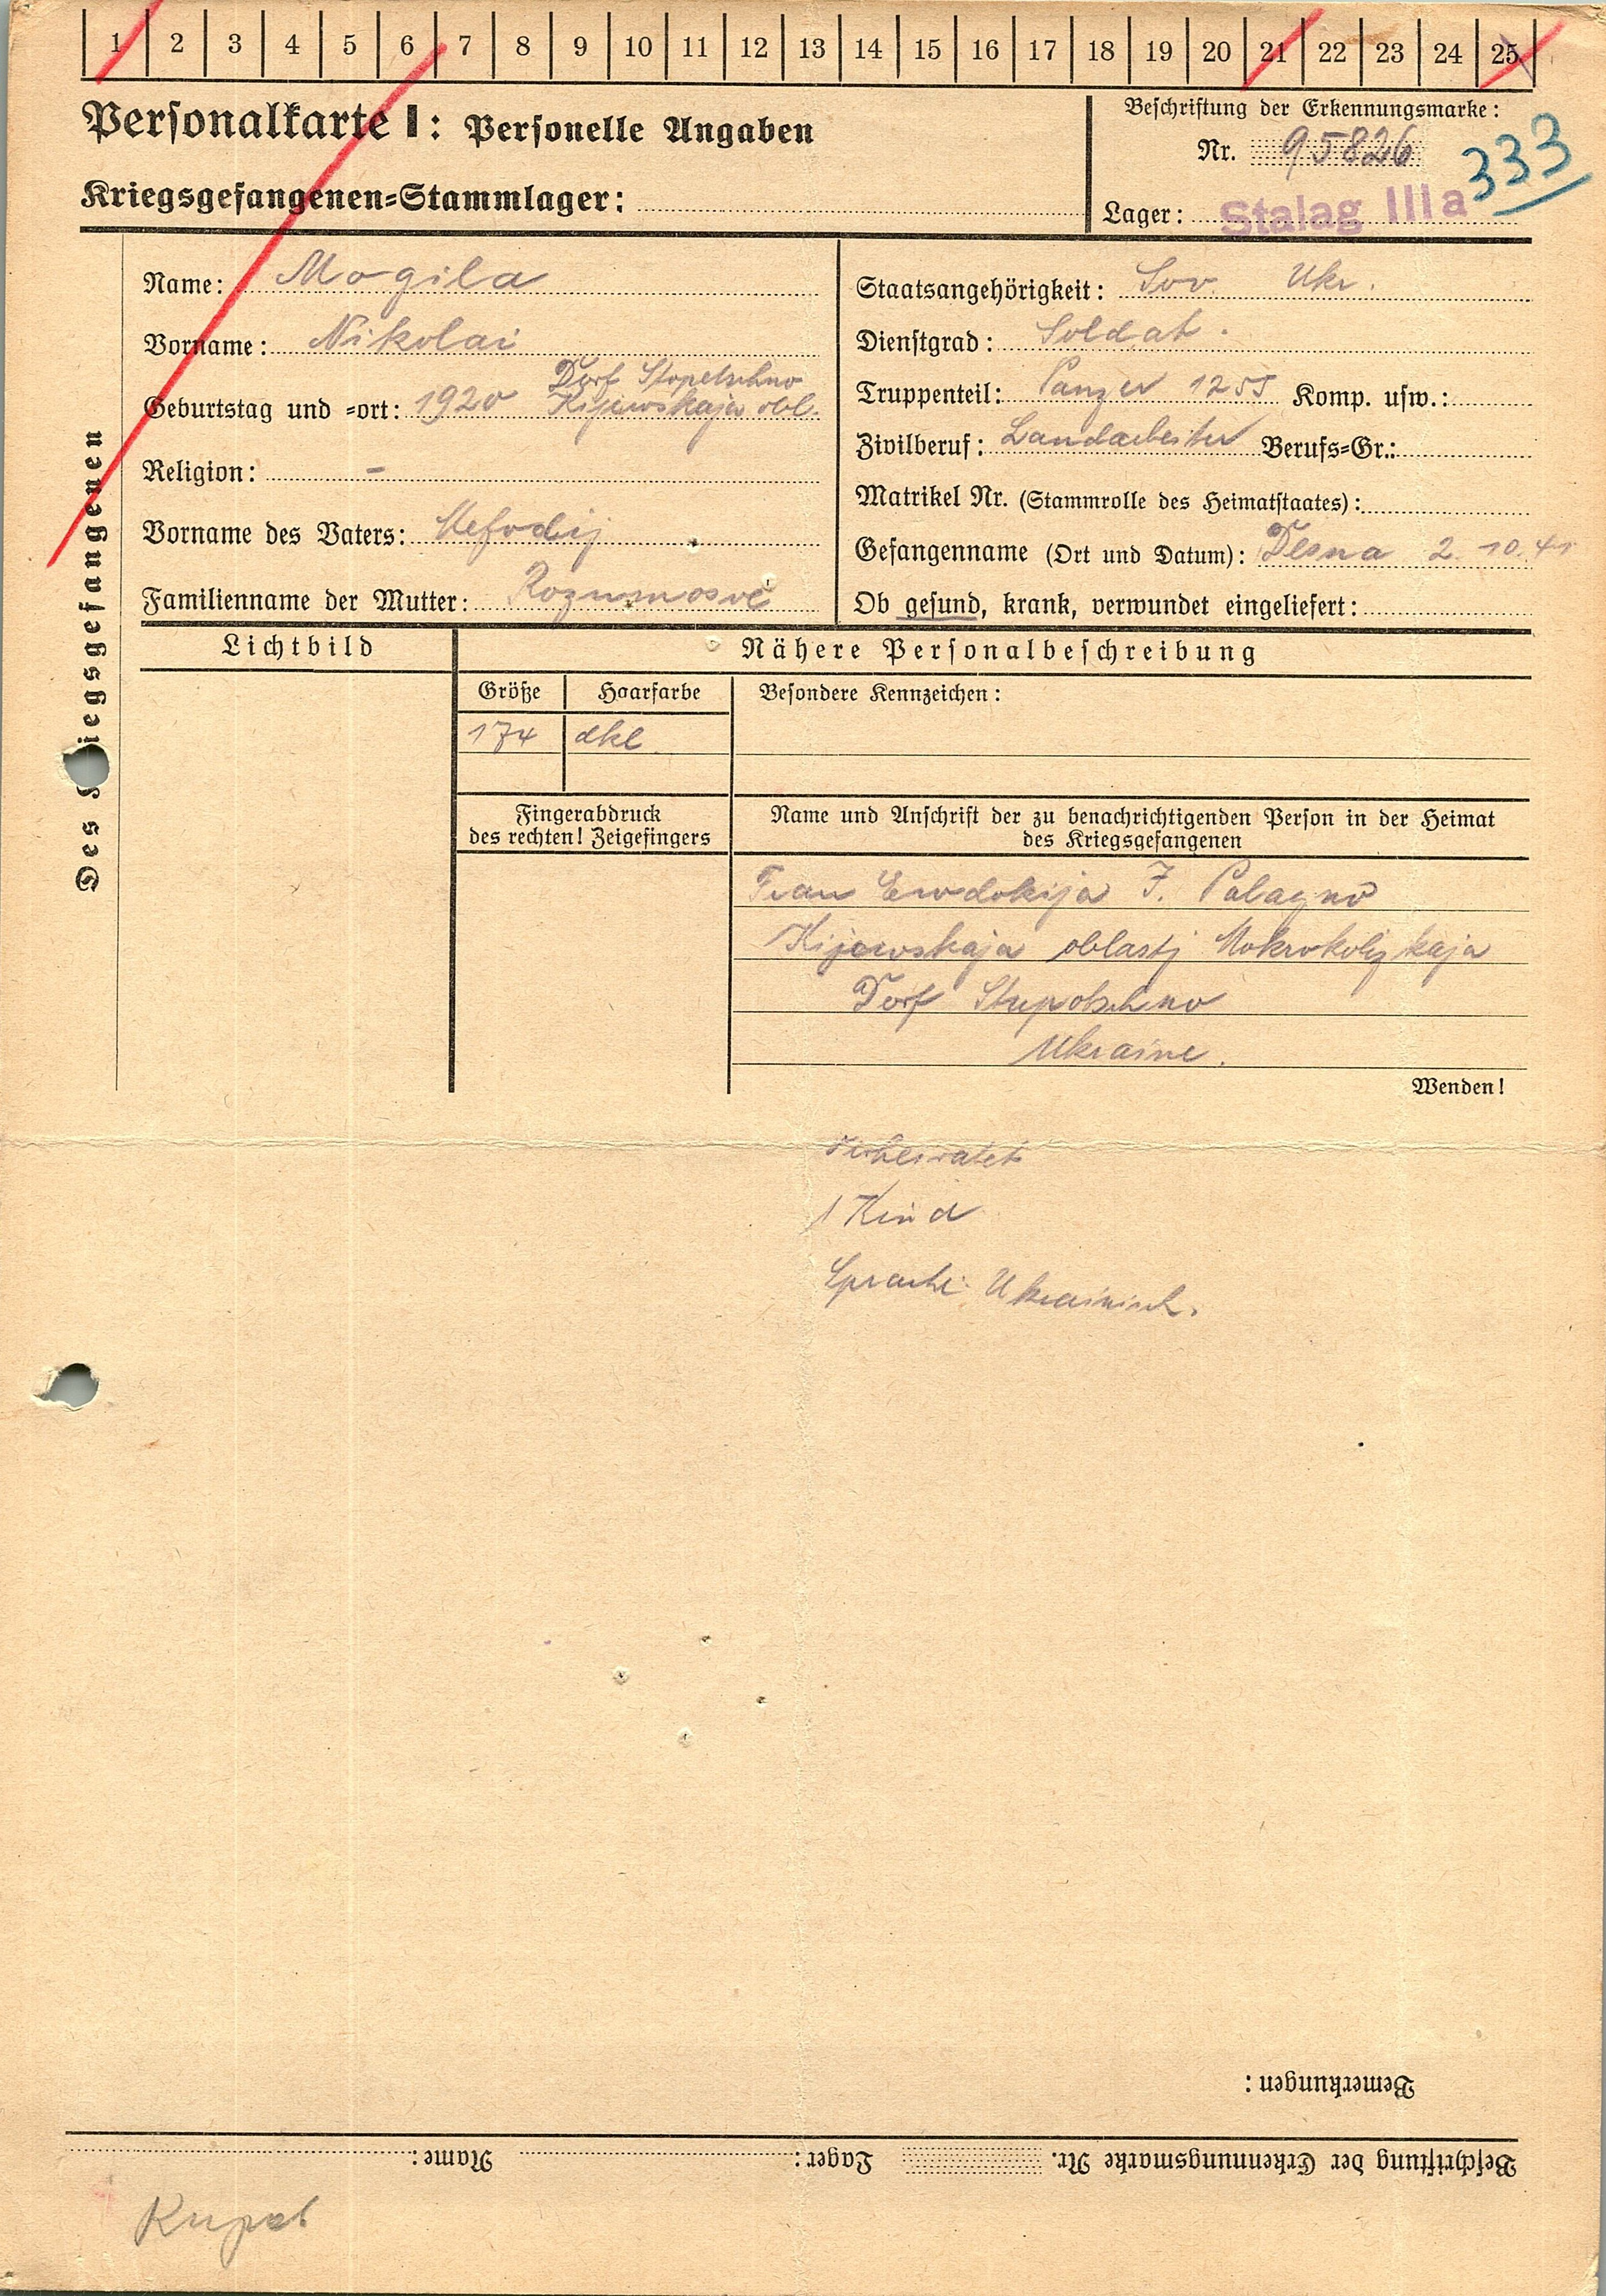 1 2 3 4 5 6 7 8 9 10 11 12 13 14 15 16 17 18 19 20 21 22 23 24 25
Personalkarte I: Personelle Angaben
Kriegsgefangenen-Stammlager:
Beschriftung der Erkennungsmarke:
Nr. 95826
333
Lager: Stalag IIIa
Des Kriegsgefangenen
Name: Mogila
Vorname: Nikolai
Dorf Stopetschno
Geburtstag und -ort: 1920 Kijewskaja obl.
Religion: -
Vorname des Vaters: Mefodij
Familienname der Mutter:
Staatsangehörigkeit: Sov. Ukr.
Dienstgrad: Soldat.
Truppenteil: Panzer 1255 Komp. usw.:
Zivilberuf: Landarbeiter Berufs-Gr.:
Matrikel Nr. (Stammrolle des Heimatstaates):
Gefangenname (Ort und Datum): Desna 2.10.41
Ob gesund, krank, verwundet eingeliefert:
Lichtbild
Nähere Personalbeschreibung
Größe Haarfarbe Besondere Kennzeichen:
174 dkl.
Fingerabdruck
des rechten! Zeigefingers
Name und Anschrift der zu benachrichtigenden Person in der Heimat
des Kriegsgefangenen
Frau Ewdokija J.
Kijewskaja oblastj
Dorf Stupotschno
Ukraine.
Wenden!
Verheiratet
1 Kind
Sprache: Ukrainisch.
Bemerkungen:
Beschriftung der Erkennungsmarke Nr. Lager: Name: